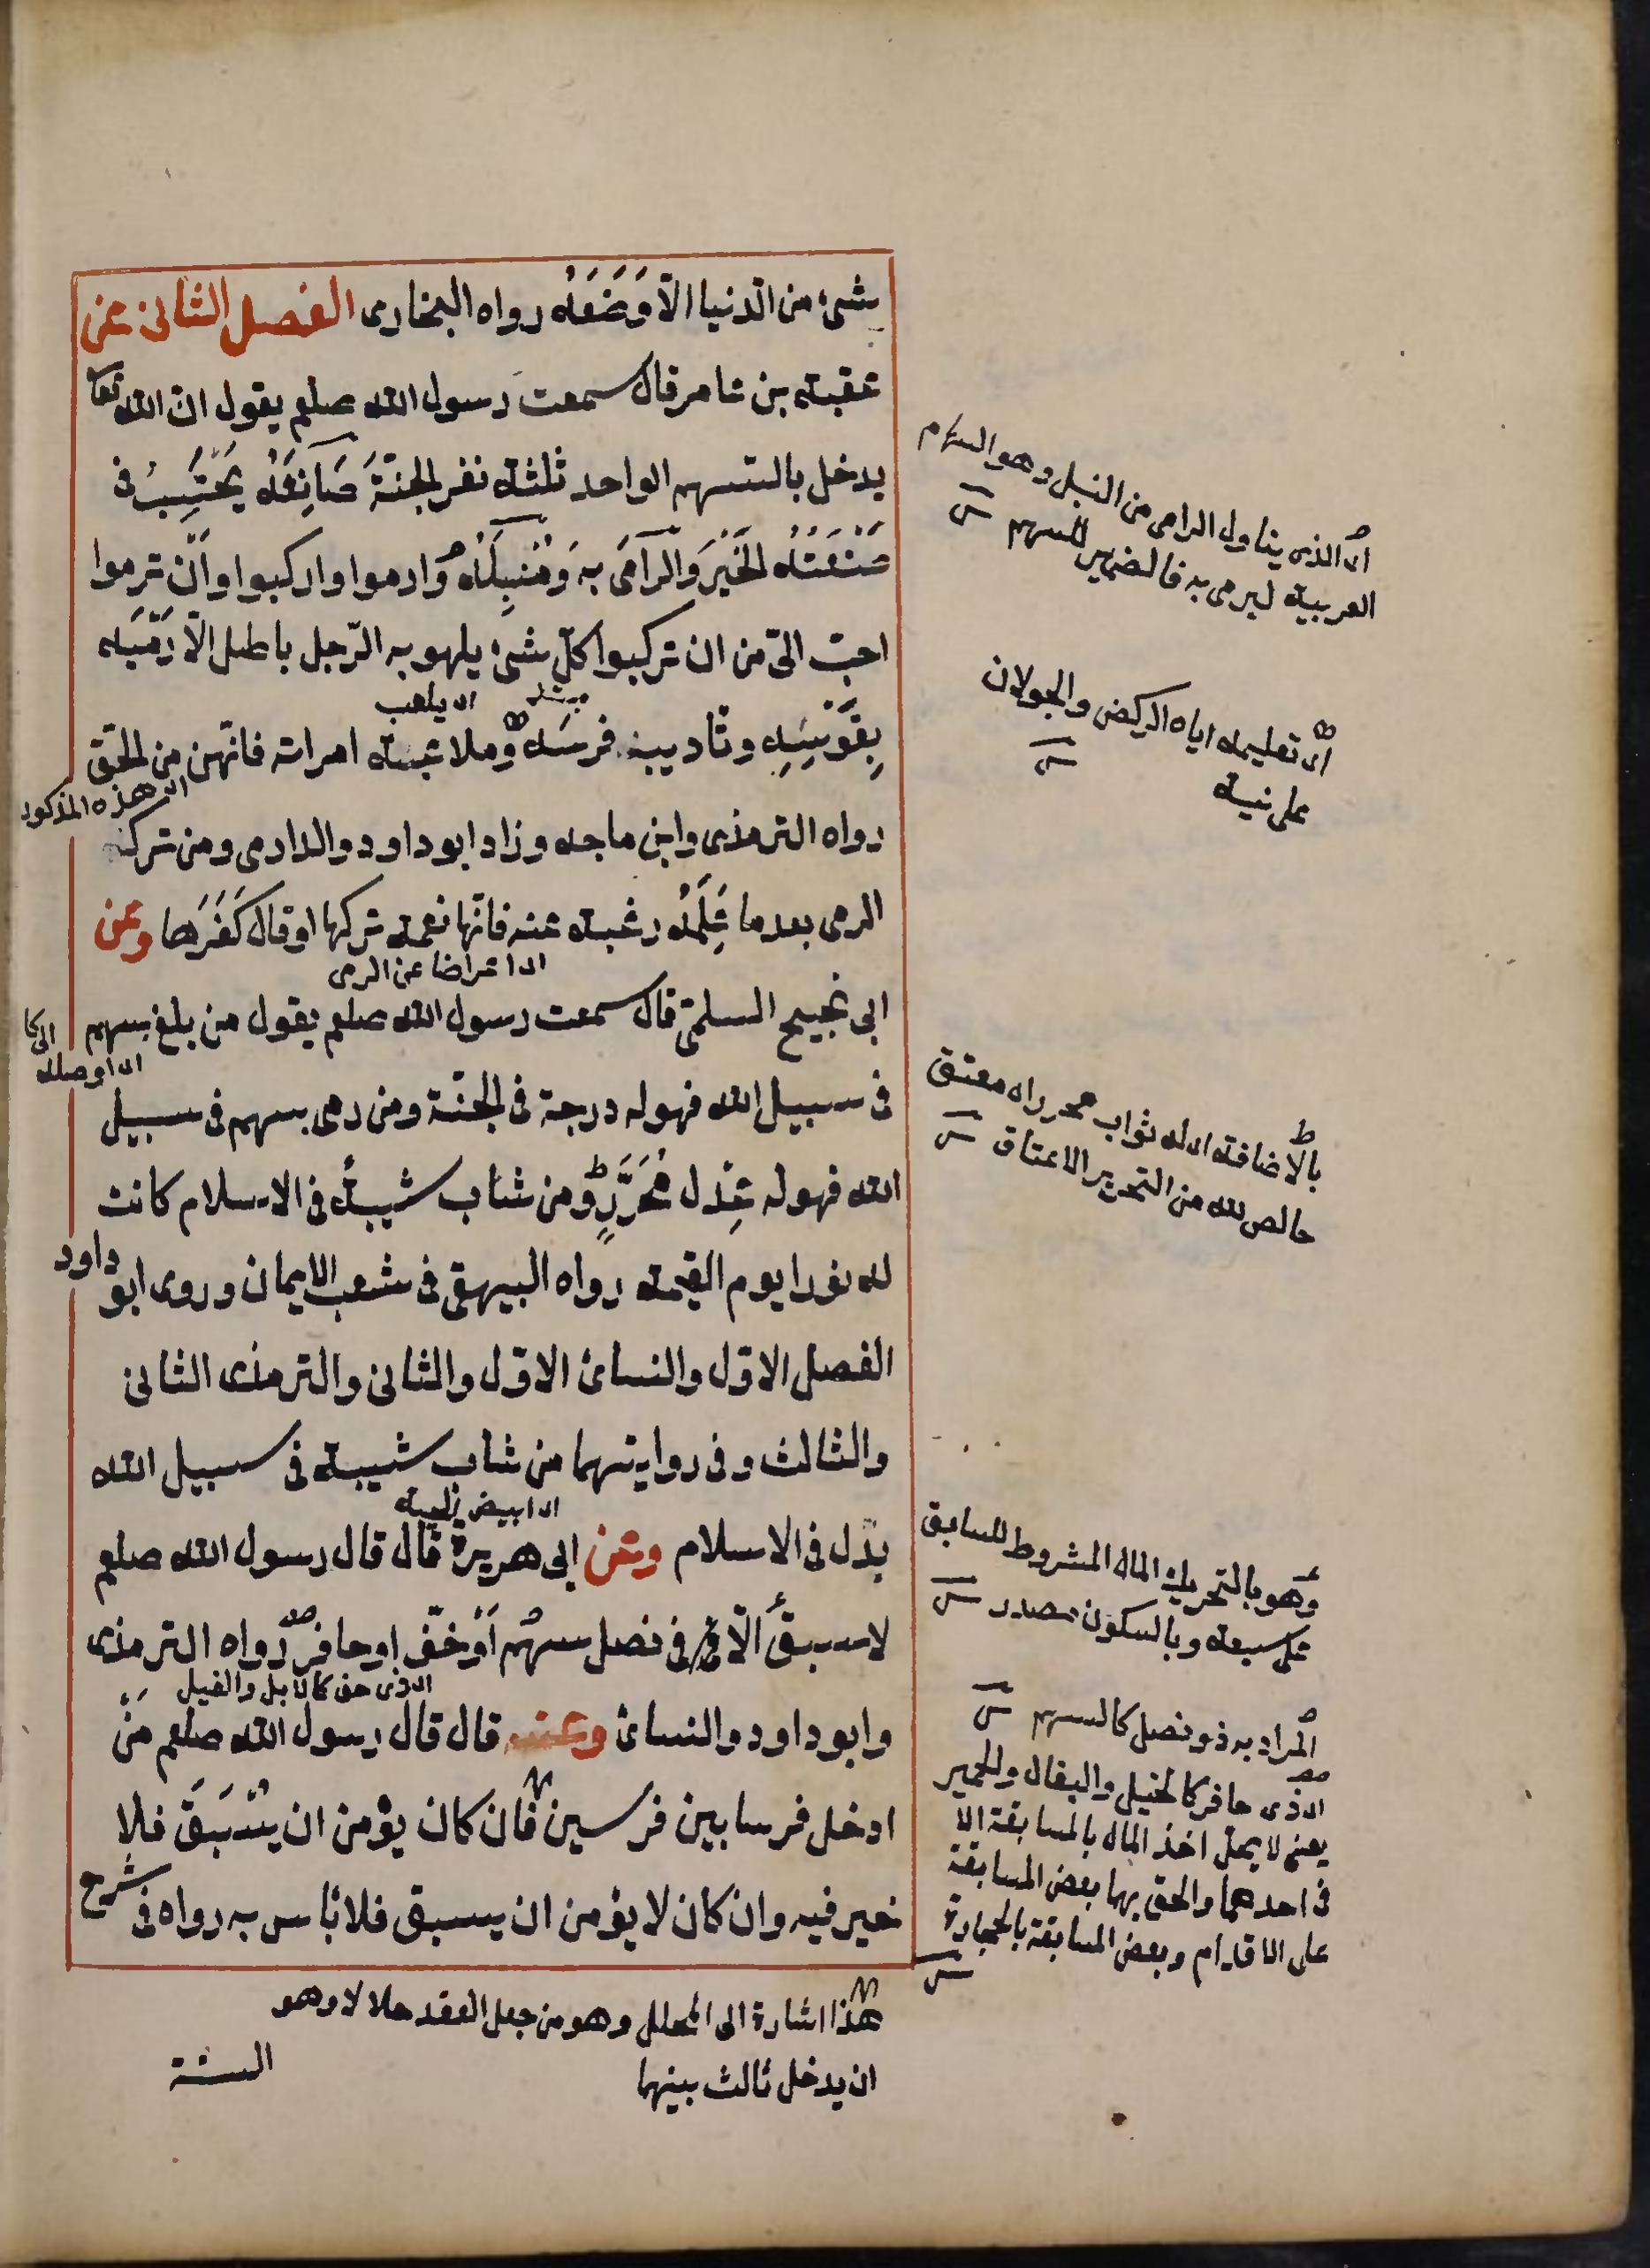 شئ من الدنيا الّا وَضَعَه رواه البخارى الفصل الثانى عن
عقبة بن عامر قال سمعت رسول الله صلعم يقول ان الله تعا
يدخل بالسهم الواحد ثلثة نفر الجنّةَ صَانِعَهُ يَحْتَسِبُ فى
صَنْعَتِهِ الخَيْرَ وَالرّامىَ به وَمُنْبِلَهُ وارموا واركبوا وأنْ ترموا
احبّ الىّ من ان تركبوا كلّ شئ يلهو به الرّجل باطل الّا رَمْيَه
اى يلعب
بِقَوْسِهِ وتأديبه فرسَه وملاعبته امراته فانّهن من الحقّ
اى هذه المذكور
رواه الترمذى وابن ماجه وزاد ابو داود والدارمى ومن ترك
الرمى بعد ما عَلِمَهُ رغبة عنه فانّها نعمة تركها او قال كَفَرَها وعن
اى اعراضا عن الرمى
ابى نجيح السلمىّ قال سمعت رسول الله صلعم يقول من بلغ بسهم
اى اوصله
فى سبيل الله فهو له درجة فى الجنّة ومن رمى بسهم فى سبيل
الله فهو له عِدْل مُحَرَّرٍ ومن شاب شيبةً فى الاسلام كانت
له نورا يوم القيمة رواه البيهقى فى شعب الايمان وروى ابو داود
الفصل الاوّل والنسائ الاوّل والثانى والترمذى الثانى
والثالث وفى روايتهما من شاب شيبة فى سبيل الله
اى ابيض لحيته
بدل فى الاسلام وعن ابى هريرة قال قال رسول الله صلعم
لا سبقَ الّا فى نصل سهم أوْ خفّ او حافر رواه الترمذى
اى ذى خف كالابل والفيل
وابو داود والنسائ وعنه قال قال رسول الله صلعم مَنْ
ادخل فرسا بين فرسين فان كان يؤمن ان يُسْبَقَ فلا
خير فيه وان كان لا يؤمن ان يسبق فلا بأس به رواه فى شرح
هذا اشارة الى المحلل وهو من جعل العقد حلالا وهو
ان يدخل ثالث بينهما
السنة
اى الذى يناول الرامى من النبل وهو السهام
العربية ليرمى به فالضمير للسهم
اى تعليمه اياه الركض والجولان
على نية
بالاضافة اى له ثواب محرر اى معتق
خالص لله من التحرير الاعتاق
وهو بالتحريك المال المشروط للسابق
على سبقه وبالسكون مصدر
المراد به ذو نصل كالسهم
اى ذى حافر كالخيل والبغال والحمير
يعنى لا يحل اخذ المال بالمسابقة الا
فى احدهما والحق بها بعض المسابقة
على الاقدام وبعض المسابقة بالحجارة